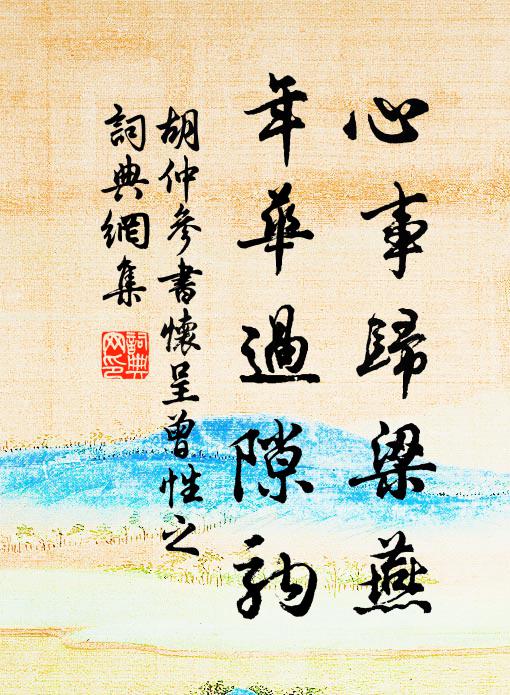 心事歸梁燕
年華過隙駒
胡仲參書懷呈曾性之
詞典網集
詞典